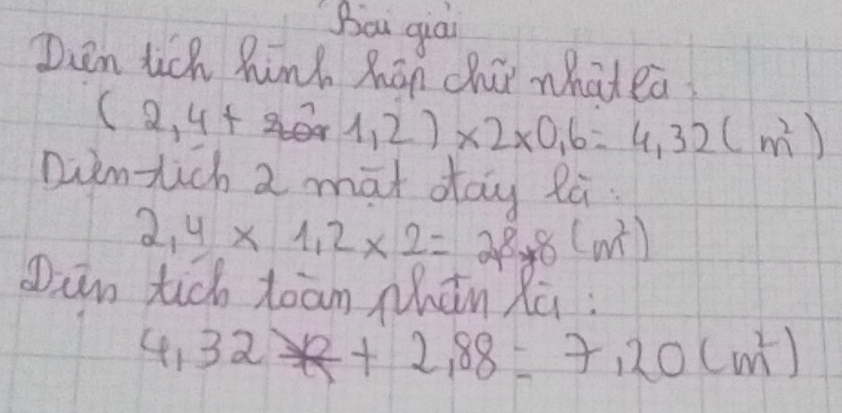 Bài giải
Diện tích hình hộp chữ nhật là:
( 2,4 + 1,2 ) × 2 × 0,6 = 4,32 ( m² )
Diện tích 2 mặt đáy là :
2,4 × 1,2 × 2 = 2,88 (m²)
Diện tích toàn phần là :
4,32 + 2,88 = 7,20 (m²)